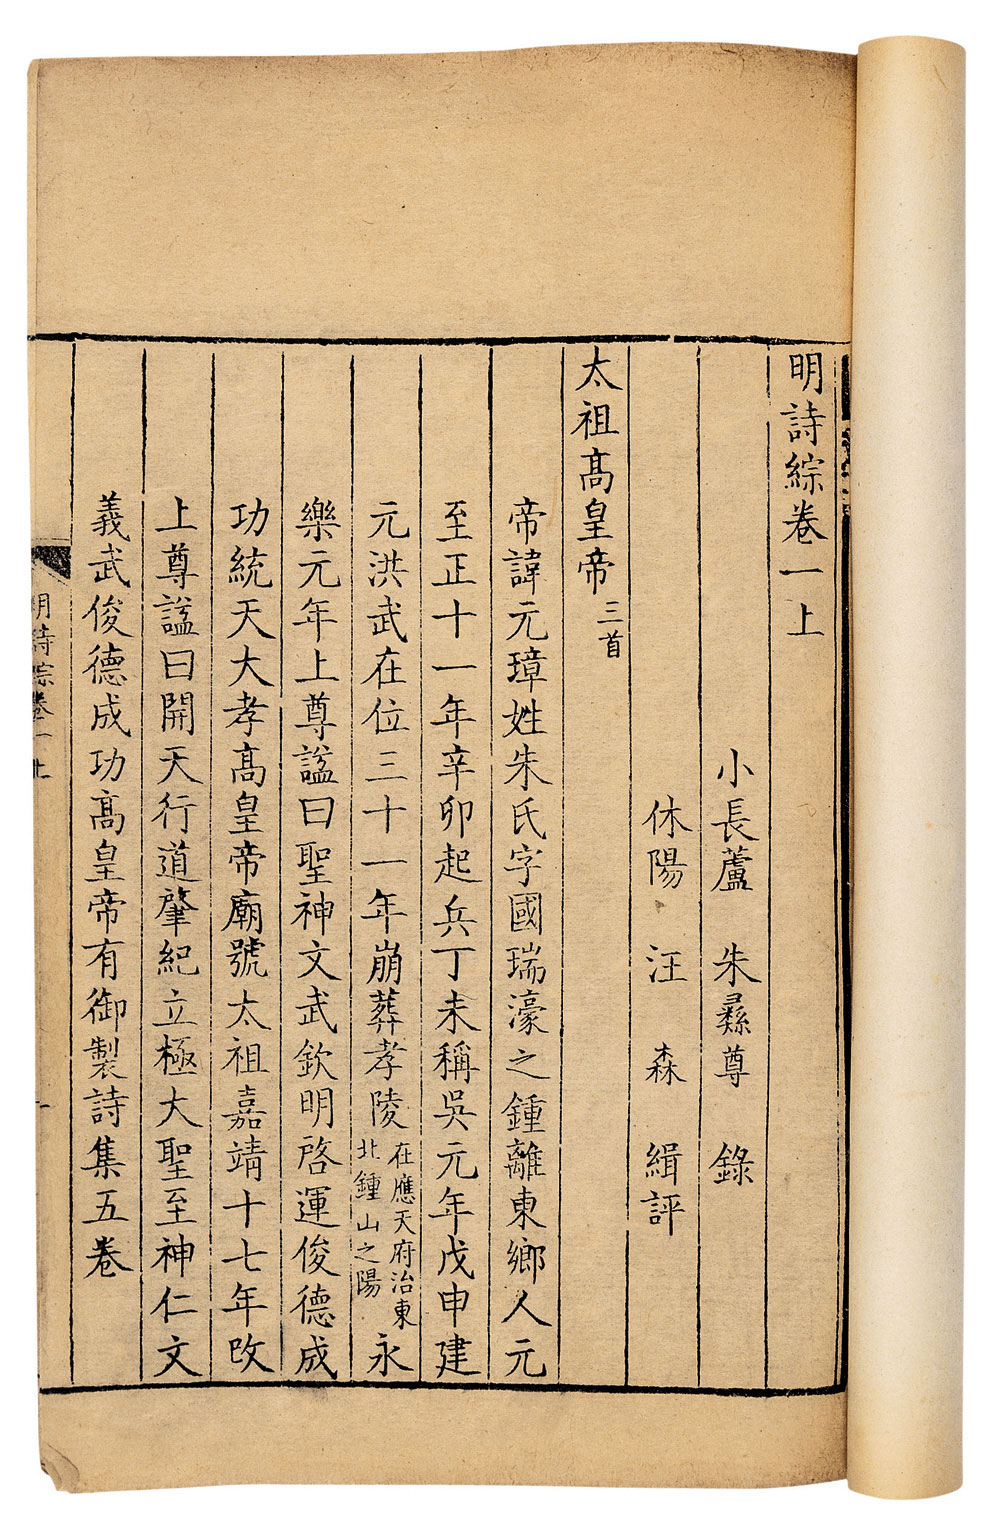 明詩綜卷一上
小長蘆 朱彝尊 錄
休陽 汪 森 緝評
太祖高皇帝 三首
帝諱元璋姓朱氏字國瑞濠之鍾離東鄉人元
至正十一年辛卯起兵丁未稱吳元年戊申建
元洪武在位三十一年崩葬孝陵 在應天府治東北鍾山之陽 永
樂元年上尊諡曰聖神文武欽明啓運俊德成
功統天大孝高皇帝廟號太祖嘉靖十七年改
上尊諡曰開天行道肇紀立極大聖至神仁文
義武俊德成功高皇帝有御製詩集五卷
明詩綜卷一上
一